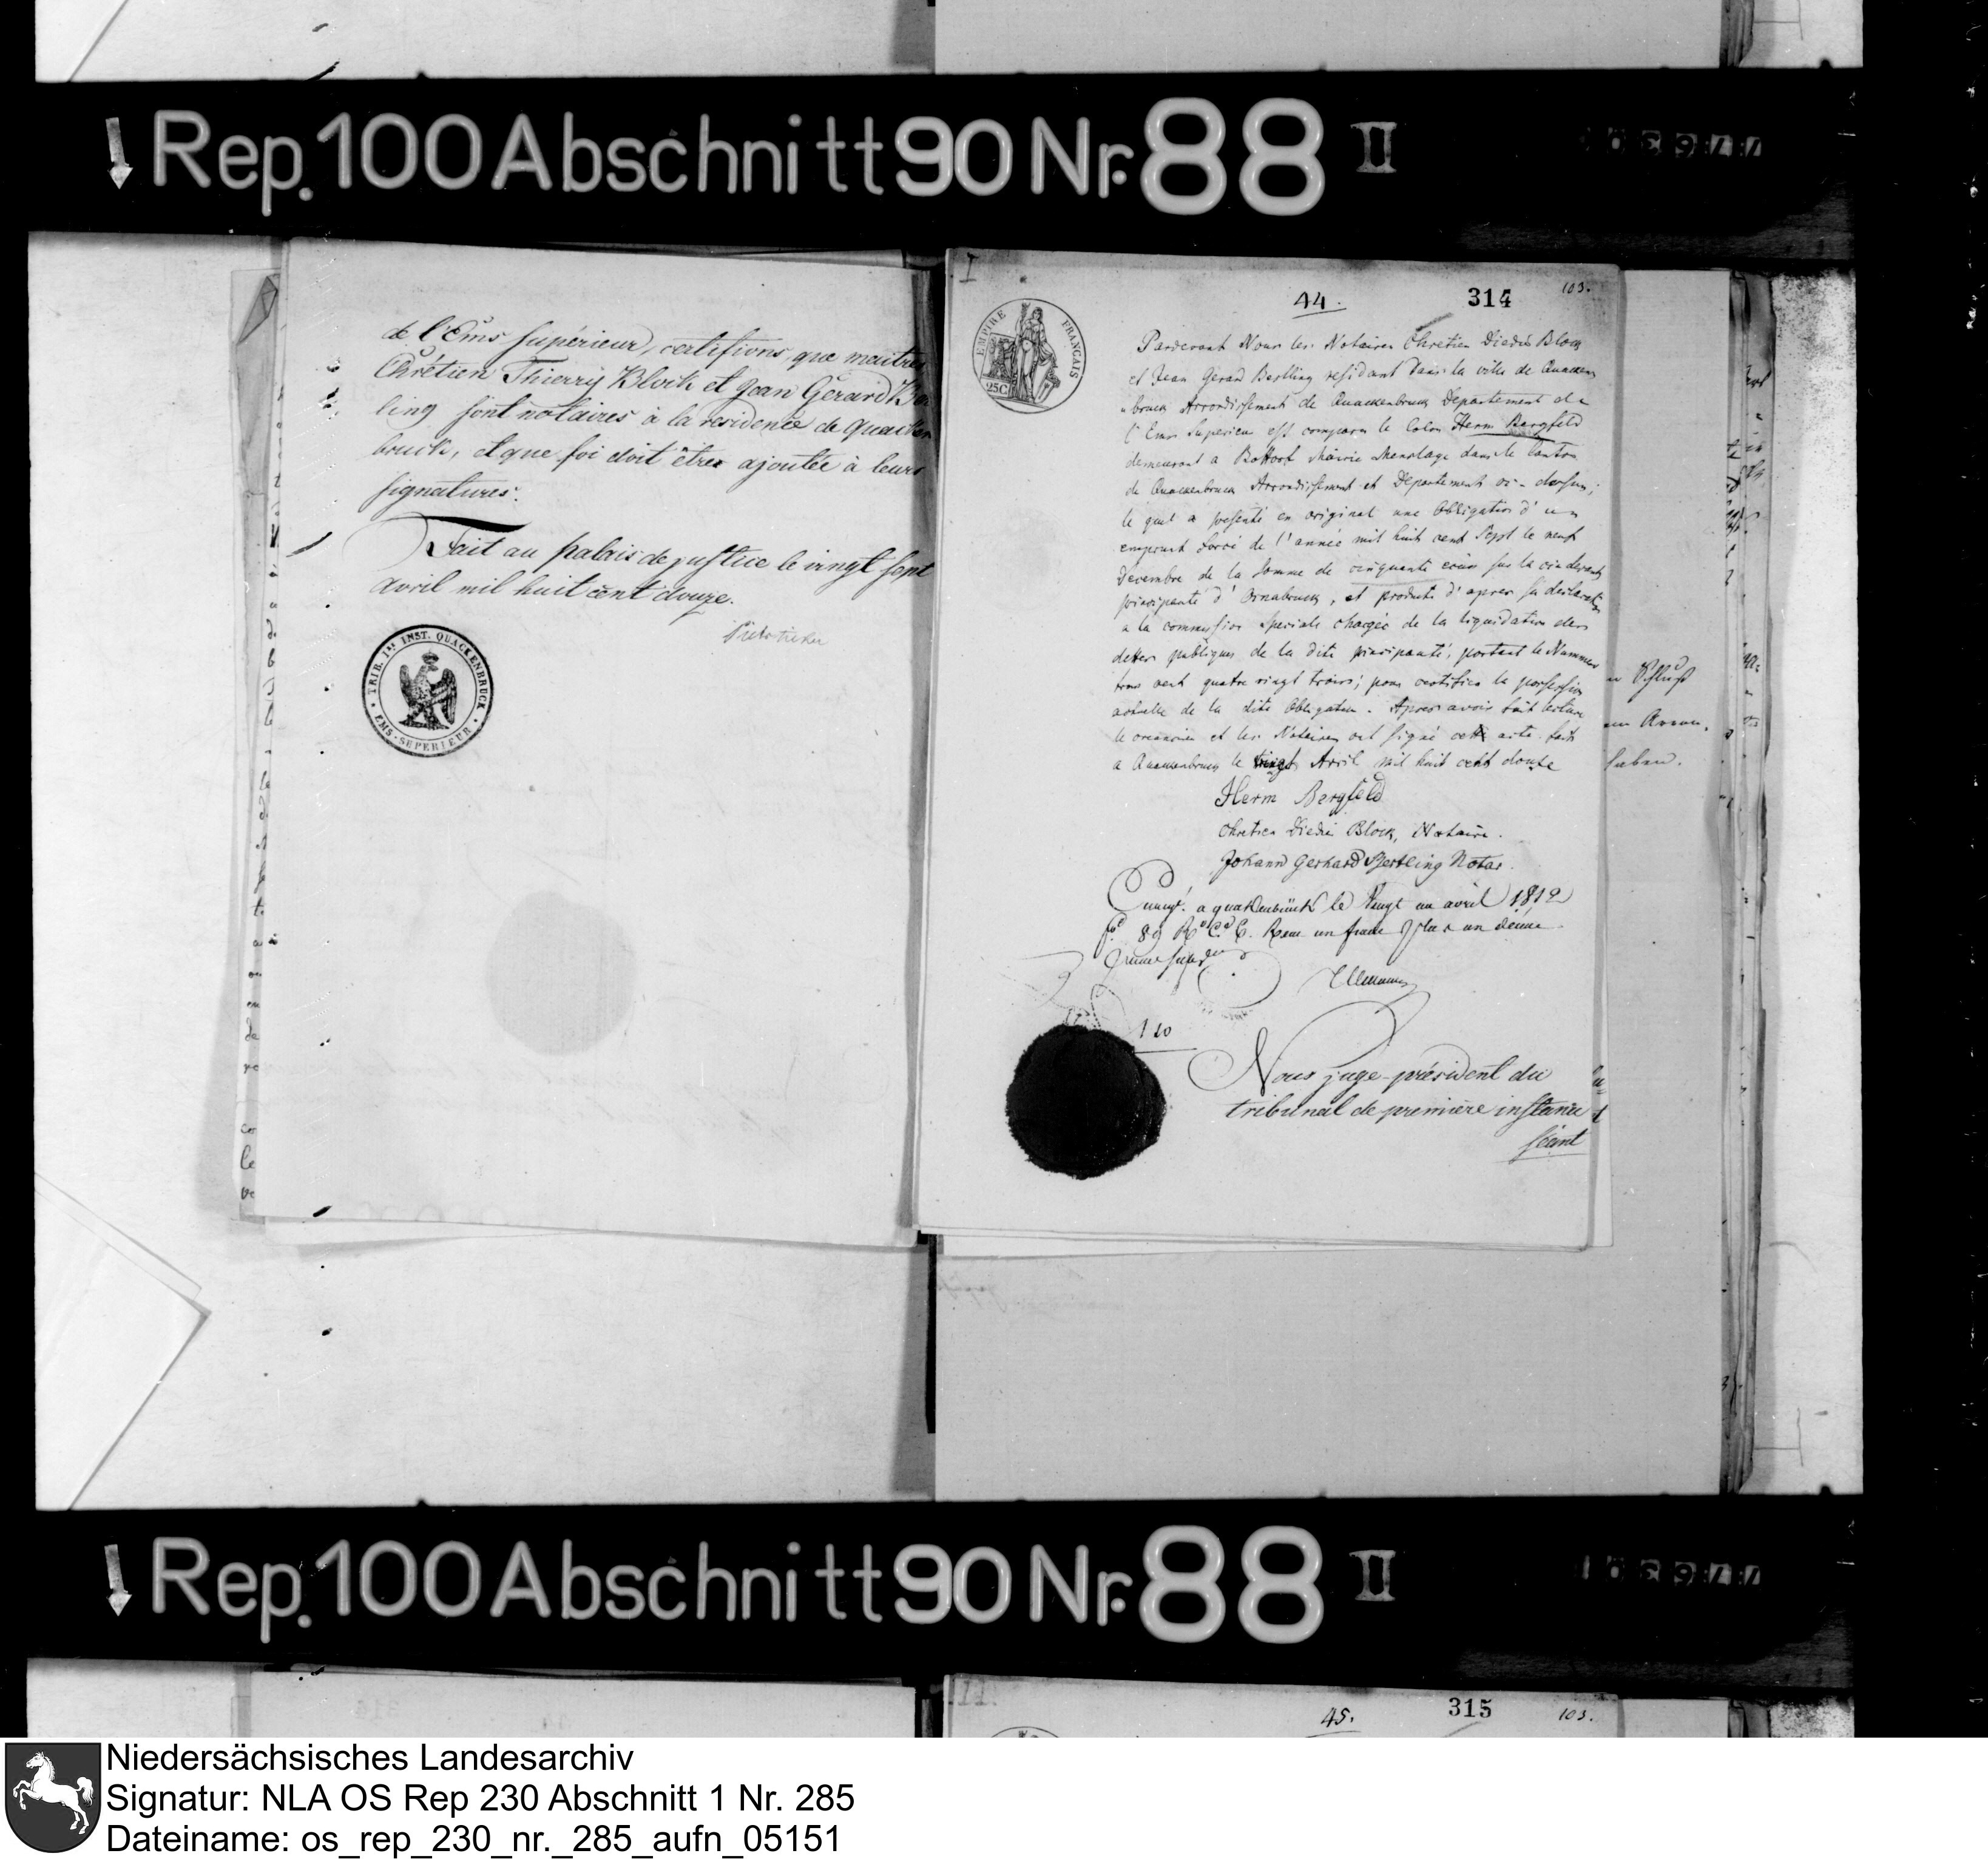 Rep. 100 Abschnitt 90 Nr. 88 II
de l'Ems Supérieur, certifions, que maitres
Chrétien Thierry Block et Jean Gérard
ling sont notaires à la residence de Quacken
bruck, et que foi doit être ajoutée à leurs
signatures.
Fait au palais de justice le vingt sept
avril mil huit cent douze.
TRIB. 1re INST. QUACKENBRUCK
EMS-SUPERIEUR
I
44.
314
103.
EMPIRE FRANÇAIS
25C
Pardevant Nous les Notaires Chretien Diedri Block
et Jean Gerard Bertling residant dans la ville de Quacken
bruck Arrondissement de Quackenbruck Departement de
l'Ems Superieur est comparu le Colon Herm Bergfeld
demeurant a Bottorf Mairie Menslage dans le Canton
de Quackenbruck Arrondissement et Departement ci-dessus;
le quel a presenté en original une Obligation d'un
emprunt forcé de l'année mil huit cent Sept le neuf
Decembre de la Somme de cinquante écus sur la ci devante
principauté d'Osnabruck, et produite d'apres sa declaration
a la commission Speciale chargée de la liquidation des
dettes publiques de la dite principauté, portant le Nummer
trois cent quatre vingt trois; pour certifier la possession
actuelle de la dite Obligation. Apres avoir fait lecture
le creancier et les Notaires ont signé cette acte fait
a Quackenbruck le vingt Avril mil huit cent douse
Herm Bergfeld
Chretien Diedri Block, Notaire.
Johann Gerhard Bertling Notar.
a quakenbrück le Vingt un avril 1812
f° 89 R° C. 6. Recu un franc plus un décime
120
Nous juge-président du
tribunal de première instance
séant
Schluß
haben.
Rep. 100 Abschnitt 90 Nr. 88 II
45.
315
103.
Niedersächsisches Landesarchiv
Signatur: NLA OS Rep 230 Abschnitt 1 Nr. 285
Dateiname: os_rep_230_nr._285_aufn_05151